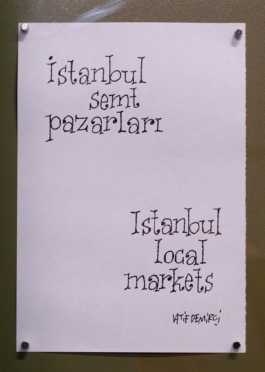 İstanbul
semt
pazarları
Istanbul
local
markets
LATİF DEMİRCİ